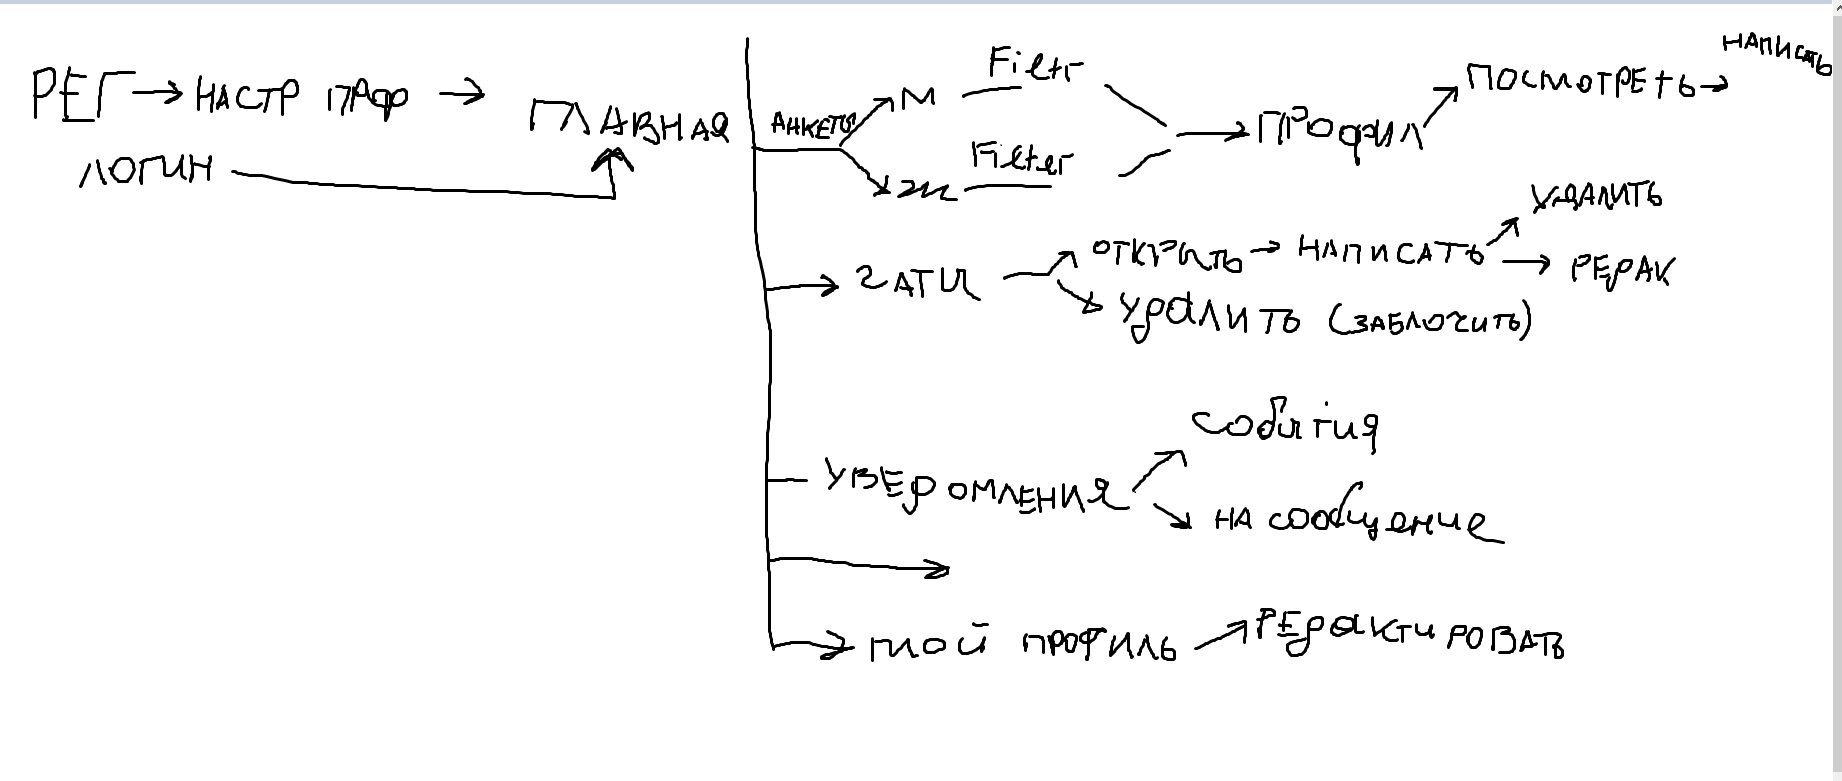 РЕГ → НАСТР ПРОФ →
ГЛАВНАЯ
ЛОГИН
АНКЕТЫ
М
Filtr
Ж
Filter
ПРОФИЛ
ПОСМОТРЕТЬ →
НАПИСАТЬ
ЧАТЫ
ОТКРЫТЬ → НАПИСАТЬ
УДАЛИТЬ
РЕДАК
УДАЛИТЬ (ЗАБЛОЧИТЬ)
УВЕДОМЛЕНИЯ
СОБЫТИЯ
НА СООБЩЕНИЕ
МОЙ ПРОФИЛЬ
РЕДАКТИРОВАТЬ